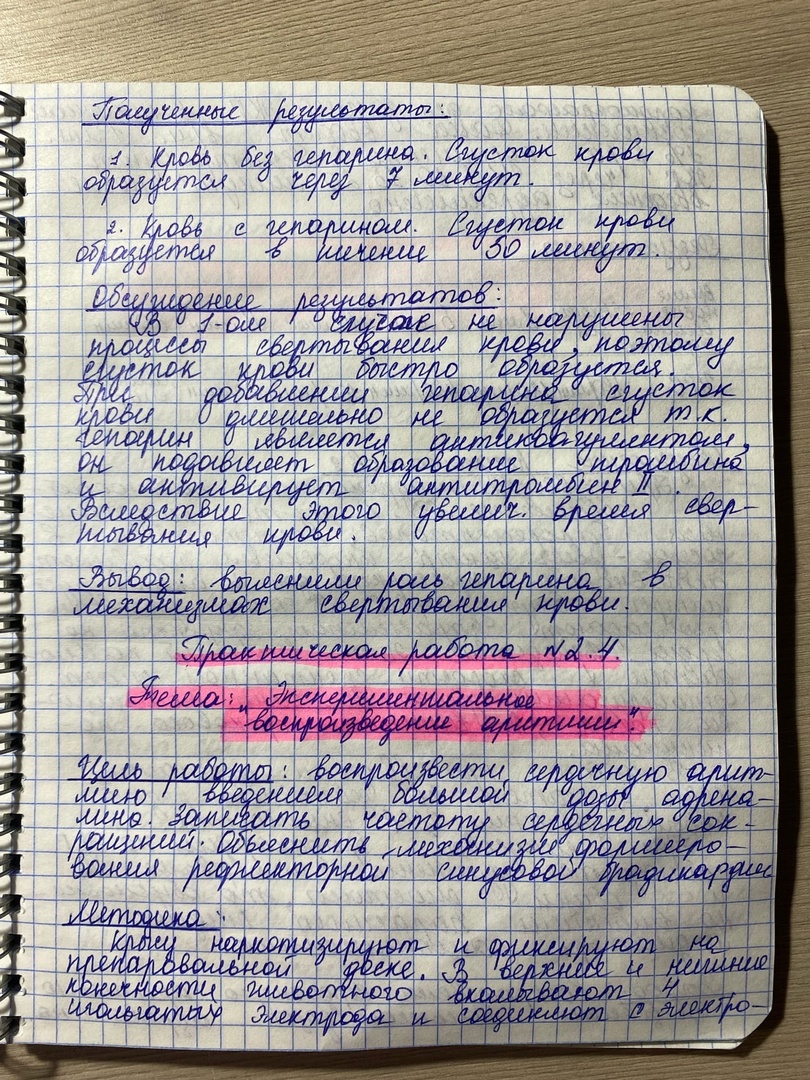 Полученные результаты:
1. Кровь без гепарина. Сгусток крови
образуется через 7 минут.
2. Кровь с гепарином. Сгусток крови
образуется в течение 50 минут.
Обсуждение результатов:
В 1-ом случае не нарушены
процессы свертывания крови, поэтому
сгусток крови быстро образуется.
При добавлении гепарина сгусток
крови длительно не образуется т.к.
гепарин является антикоагулянтом,
он подавляет образование тромбина
и активирует антитромбин II.
Вследствие этого увелич. время свер-
тывания крови.
Вывод: выяснили роль гепарина в
механизмах свертывания крови.
Практическая работа №2.4.
Тема: "Экспериментальное
воспроизведение аритмии".
Цель работы: воспроизвести сердечную арит-
мию введением большой дозы адрена-
лина. Записать частоту сердечных сок-
ращений. Объяснить механизм формиро-
вания рефлекторной синусовой брадикардии
Методика:
Крысу наркотизируют и фиксируют на
препаровальной доске. В верхние и нижние
конечности животного вкалывают 4
игольчатых электрода и соединяют с электро-